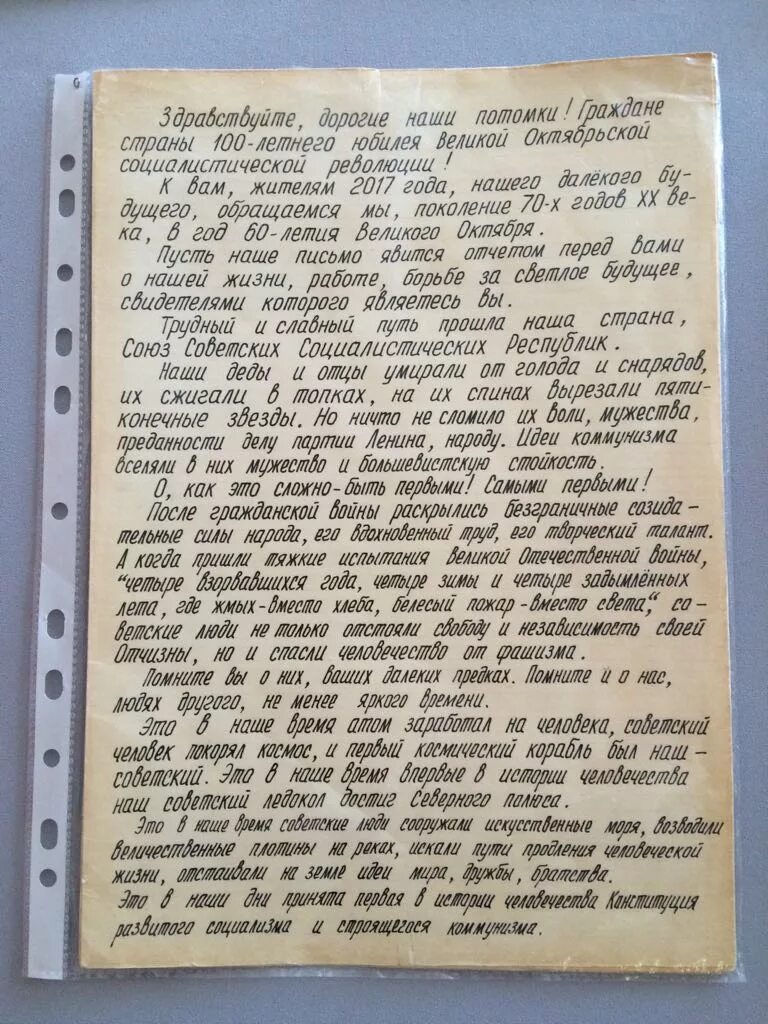 Здравствуйте, дорогие наши потомки! Граждане
страны 100-летнего юбилея Великой Октябрьской
социалистической революции!
К вам, жителям 2017 года, нашего далёкого бу-
дущего, обращаемся мы, поколение 70-х годов XX ве-
ка, в год 60-летия Великого Октября.
Пусть наше письмо явится отчетом перед вами
о нашей жизни, работе, борьбе за светлое будущее,
свидетелями которого являетесь вы.
Трудный и славный путь прошла наша страна,
Союз Советских Социалистических Республик.
Наши деды и отцы умирали от голода и снарядов,
их сжигали в топках, на их спинах вырезали пяти-
конечные звезды. Но ничто не сломило их воли, мужества,
преданности делу партии Ленина, народу. Идеи коммунизма
вселяли в них мужество и большевистскую стойкость.
О, как это сложно-быть первыми! Самыми первыми!
После гражданской войны раскрылись безграничные созида-
тельные силы народа, его вдохновенный труд, его творческий талант.
А когда пришли тяжкие испытания Великой Отечественной войны,
"четыре взорвавшихся года, четыре зимы и четыре задымлённых
лета, где жмых-вместо хлеба, белесый пожар-вместо света", со-
ветские люди не только отстояли свободу и независимость своей
Отчизны, но и спасли человечество от фашизма.
Помните вы о них, ваших далеких предках. Помните и о нас,
людях другого, не менее яркого времени.
Это в наше время атом заработал на человека, советский
человек покорял космос, и первый космический корабль был наш-
советский. Это в наше время впервые в истории человечества
наш советский ледокол достиг Северного полюса.
Это в наше время советские люди сооружали искусственные моря, возводили
величественные плотины на реках, искали пути продления человеческой
жизни, отстаивали на земле идеи мира, дружбы, братства.
Это в наши дни принята первая в истории человечества Конституция
развитого социализма и строящегося коммунизма.